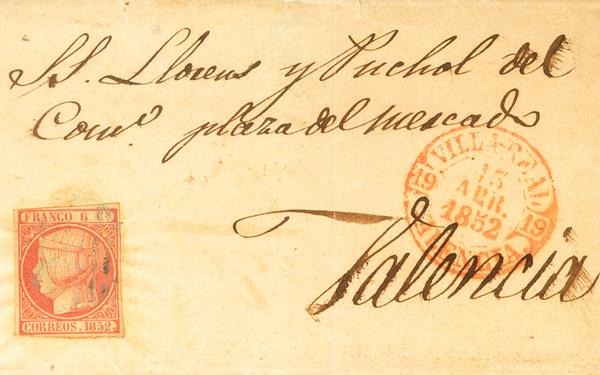 SS. Llorens y Puchol del
Com.º plaza del mercado
VILLARREAL
19 13 19
ABR.
1852
VALENCIA
FRANCO 6 Cs
CORREOS. 1852.
Valencia